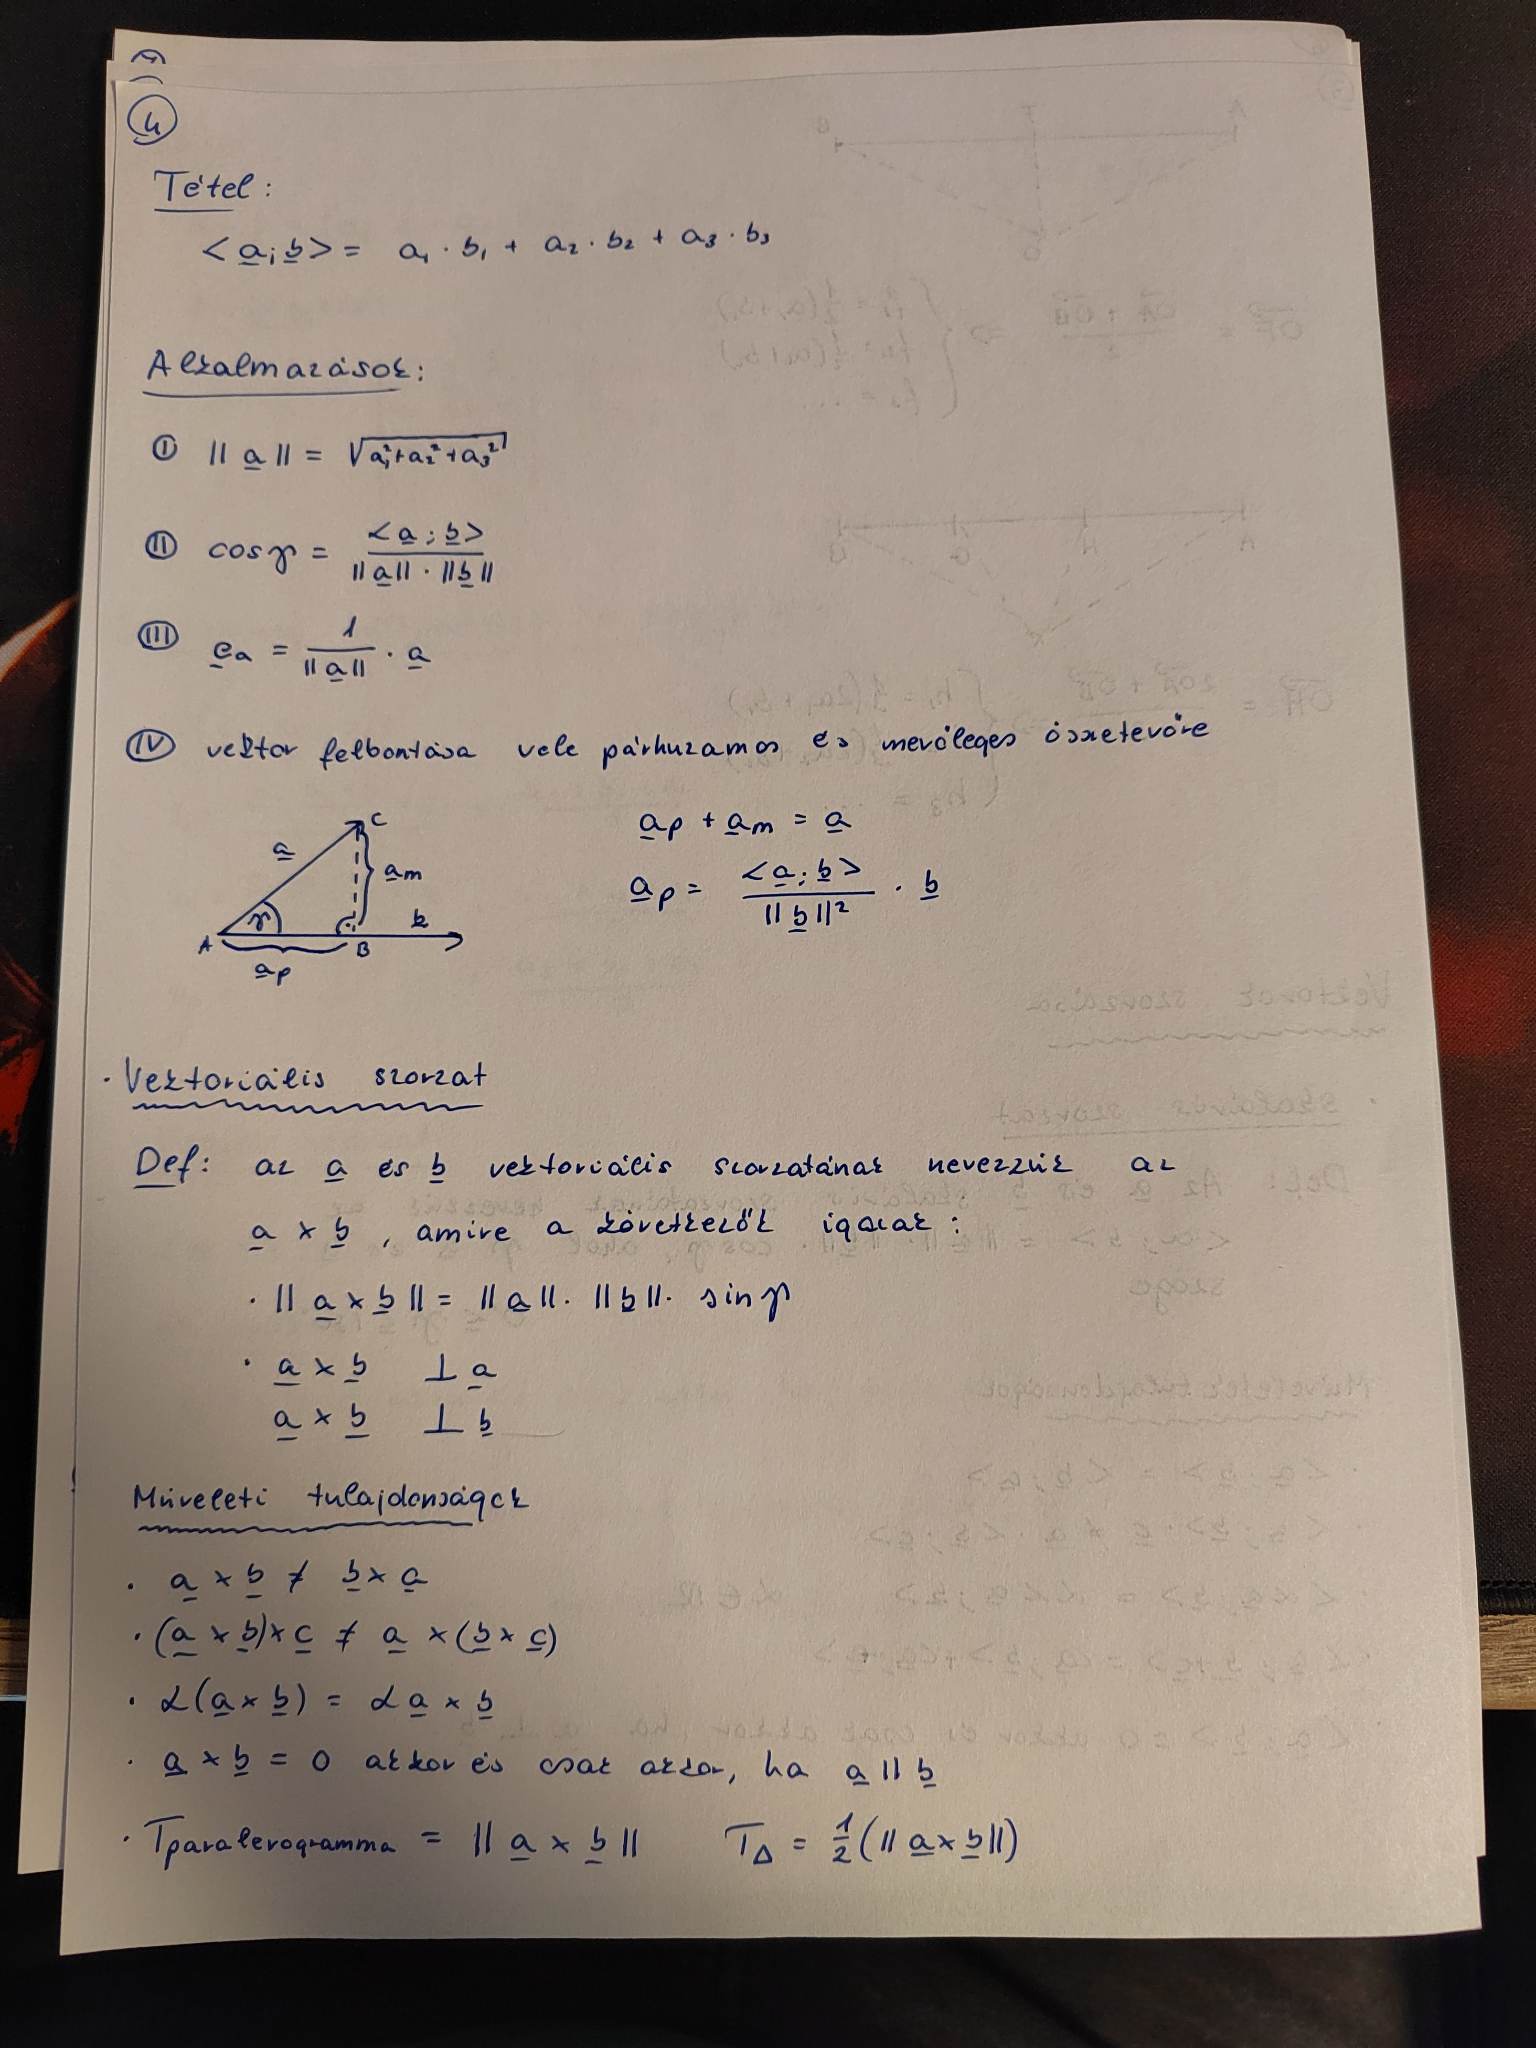 4
Tétel:
<a;b> = a₁ · b₁ + a₂ · b₂ + a₃ · b₃
Alkalmazások:
I ||a|| = √(a₁²+a₂²+a₃²)
II cosγ = <a;b> / ||a|| · ||b||
III eₐ = 1/||a|| · a
IV vektor felbontása vele párhuzamos és merőleges összetevőre
C
a
aₘ
γ
b
A
B
aₚ
aₚ + aₘ = a
aₚ = <a;b> / ||b||² · b
· Vektoriális szorzat
Def: az a és b vektoriális szorzatának nevezzük az
a × b , amire a következők igazak:
· ||a × b|| = ||a|| · ||b|| · sinγ
· a × b ⊥ a
a × b ⊥ b
Műveleti tulajdonságok
· a × b ≠ b × a
· (a × b) × c ≠ a × (b × c)
· α(a × b) = αa × b
· a × b = 0 akkor és csak akkor, ha a || b
· Tparalerogramma = ||a × b|| T△ = 1/2 (||a × b||)